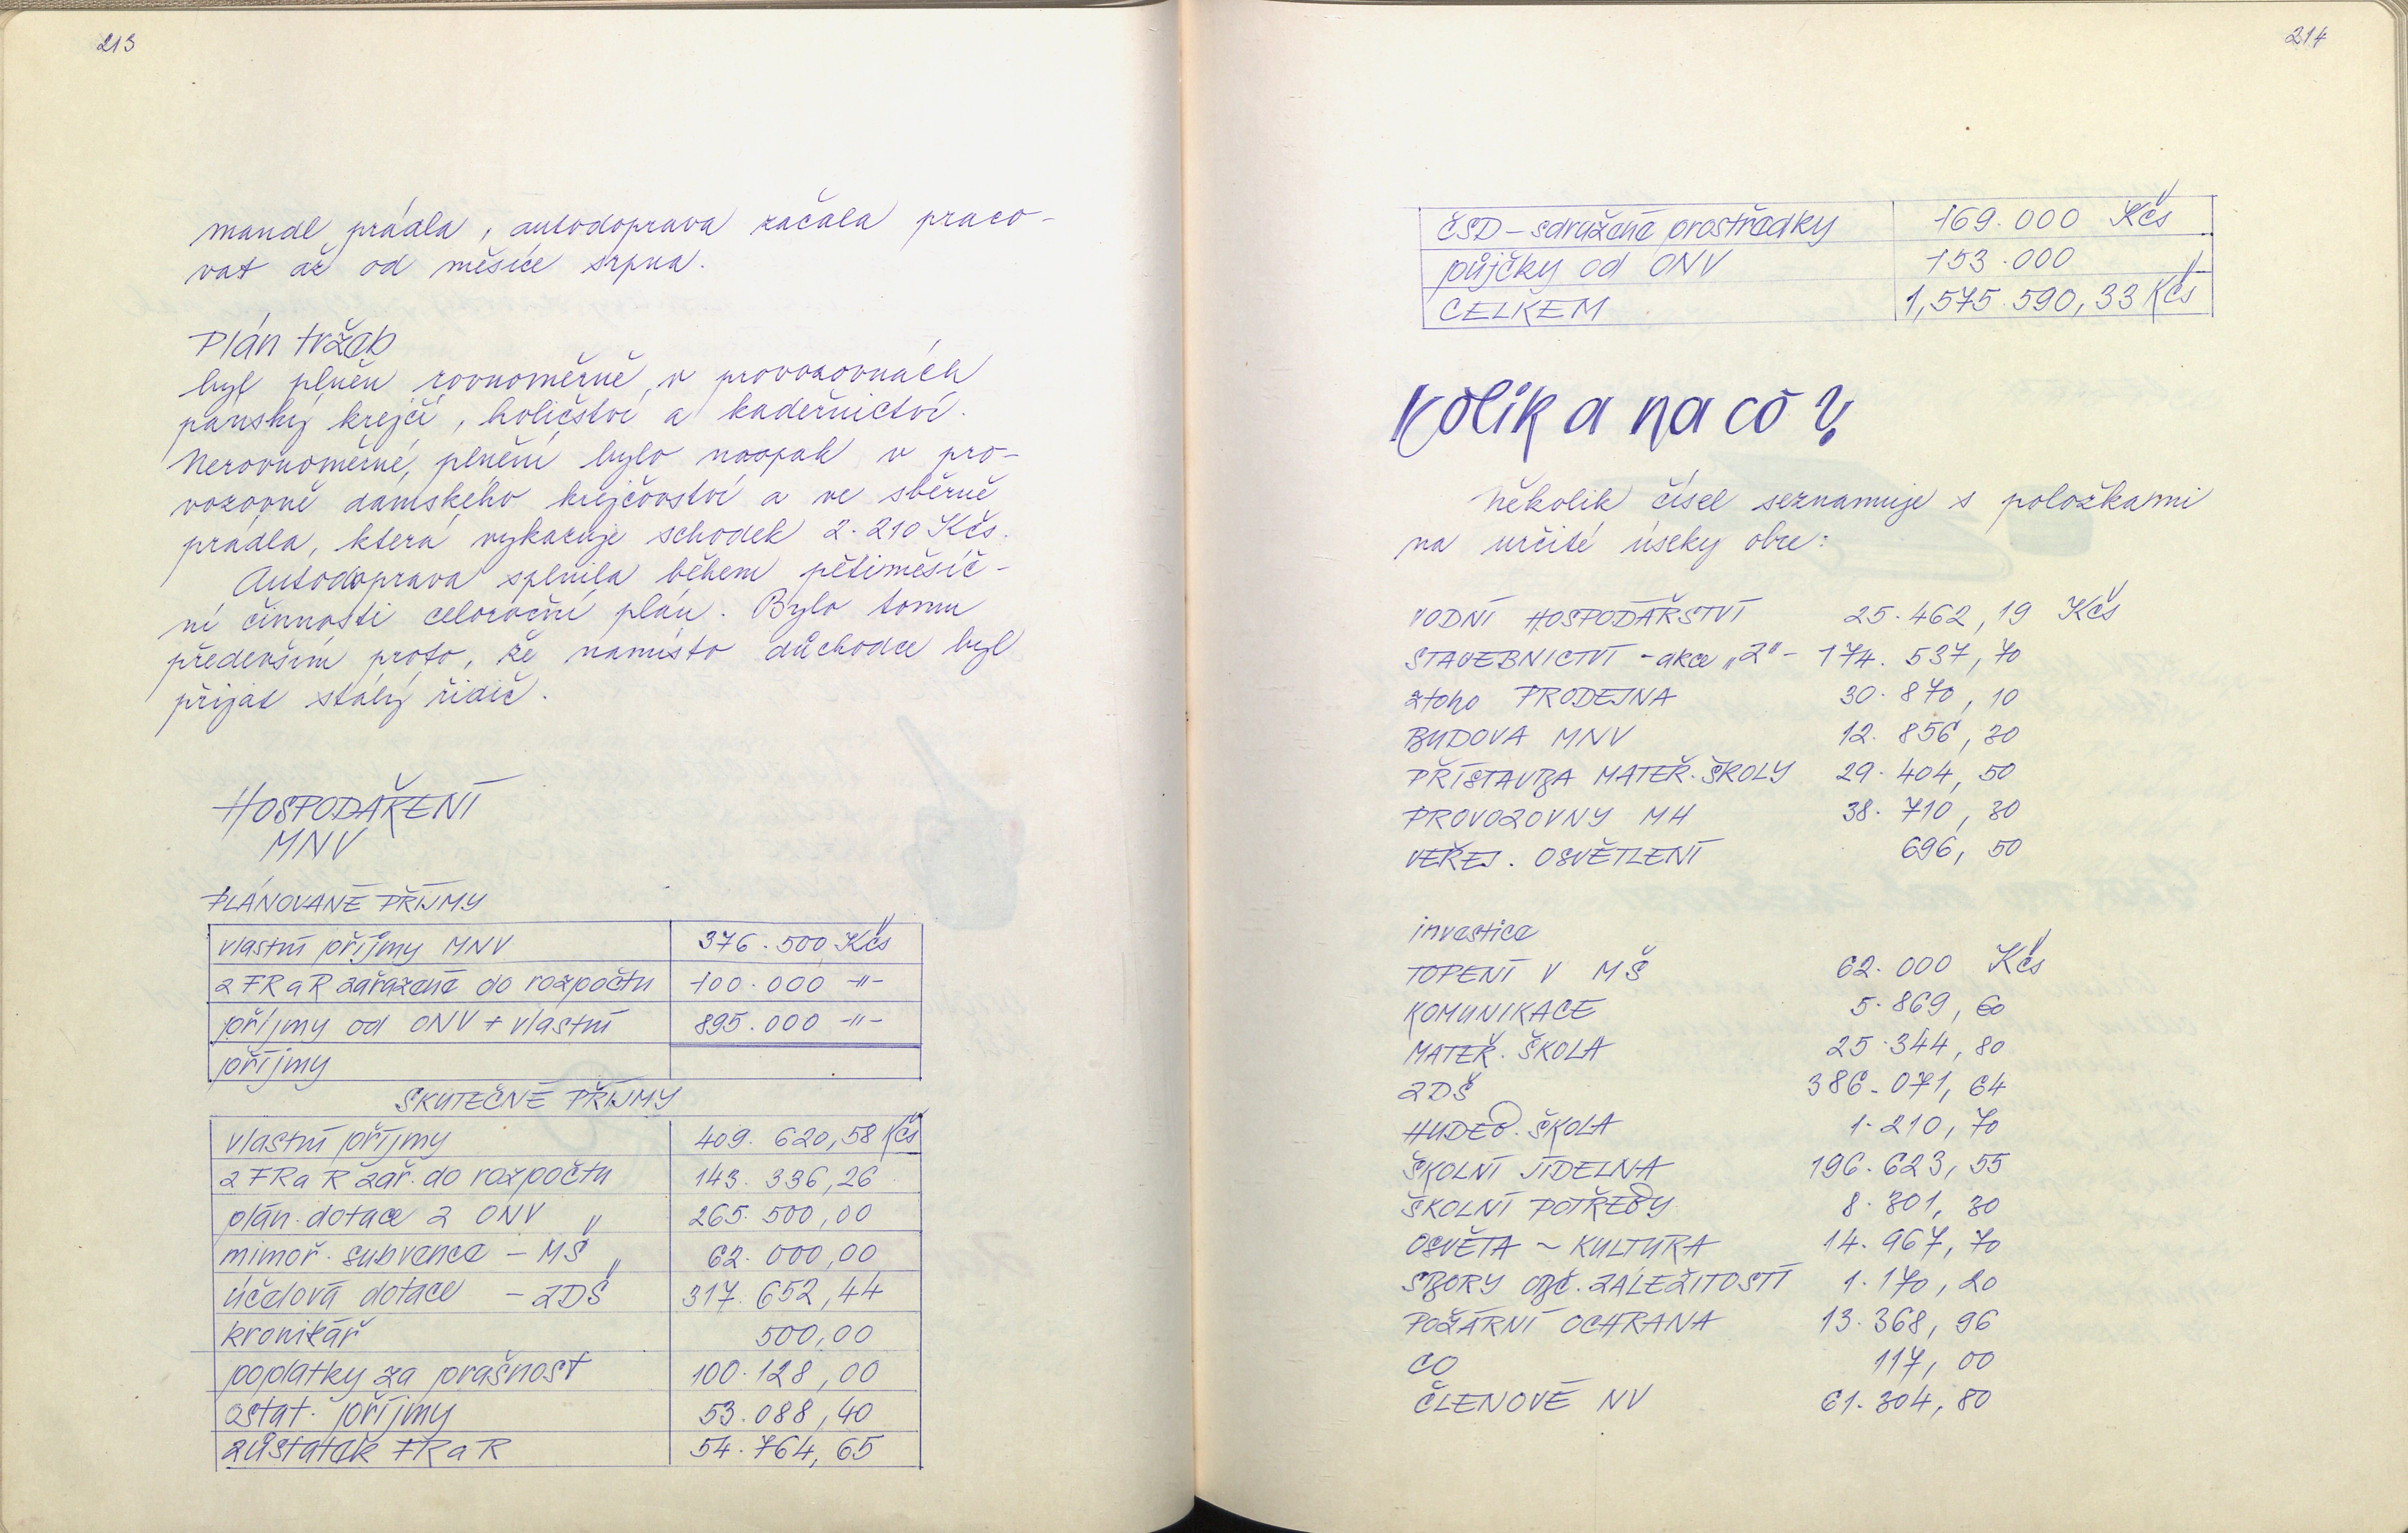 213
mandl prádla, autodoprava začala praco-
vat až od měsíce srpna.
Plán tržeb
byl plněn rovnoměrně v provozovnách
pánský krejčí, holičství a kadeřnictví.
Nerovnoměrné plnění bylo naopak v pro-
vozovně dámského krejčovství a ve sběrně
prádla, která vykazuje schodek 2.210 Kčs.
Autodoprava splnila během pětiměsíč-
ní činnosti celoroční plán. Bylo tomu
především proto, že namísto důchodce byl
přijat stálý řidič.
HOSPODAŘENÍ
MNV
PLÁNOVANÉ PŘÍJMY
vlastní příjmy MNV 376.500 Kčs
z FRaR zařazené do rozpočtu 100.000 -"-
příjmy od ONV + vlastní 895.000 -"-
příjmy
SKUTEČNÉ PŘÍJMY
vlastní příjmy 409.620,58 Kčs
z FRaR zař. do rozpočtu 143.336,26
plán. dotace z ONV " 265.500,00
mimoř. subvence - MŠ " 62.000,00
účelová dotace - ZDŠ 317.652,44
kronikář 500,00
poplatky za prašnost 100.128,00
ostat. příjmy 53.088,40
zůstatek FRaR 54.764,65
214
ČSD - sdružené prostředky 169.000 Kčs
půjčky od ONV 153.000
CELKEM 1,575.590,33 Kčs
Kolik a na co?
Několik čísel seznamuje s položkami
na určité úseky obce:
VODNÍ HOSPODÁŘSTVÍ 25.462,19 Kčs
STAVEBNICTVÍ - akce „Z" - 174.537,70
z toho PRODEJNA 30.870,10
BUDOVA MNV 12.856,30
PŘÍSTAVBA MATEŘ. ŠKOLY 29.404,50
PROVOZOVNY MH 38.710,30
VEŘEJ. OSVĚTLENÍ 696,50
investice
TOPENÍ V MŠ 62.000 Kčs
KOMUNIKACE 5.869,60
MATEŘ. ŠKOLA 25.344,80
ZDŠ 386.071,64
HUDEB. ŠKOLA 1.210,70
ŠKOLNÍ JÍDELNA 196.623,55
ŠKOLNÍ POTŘEBY 8.301,30
OSVĚTA - KULTURA 14.967,70
SBORY OBČ. ZÁLEŽITOSTÍ 1.170,20
POŽÁRNÍ OCHRANA 13.368,96
CO 117,00
ČLENOVÉ NV 61.304,80